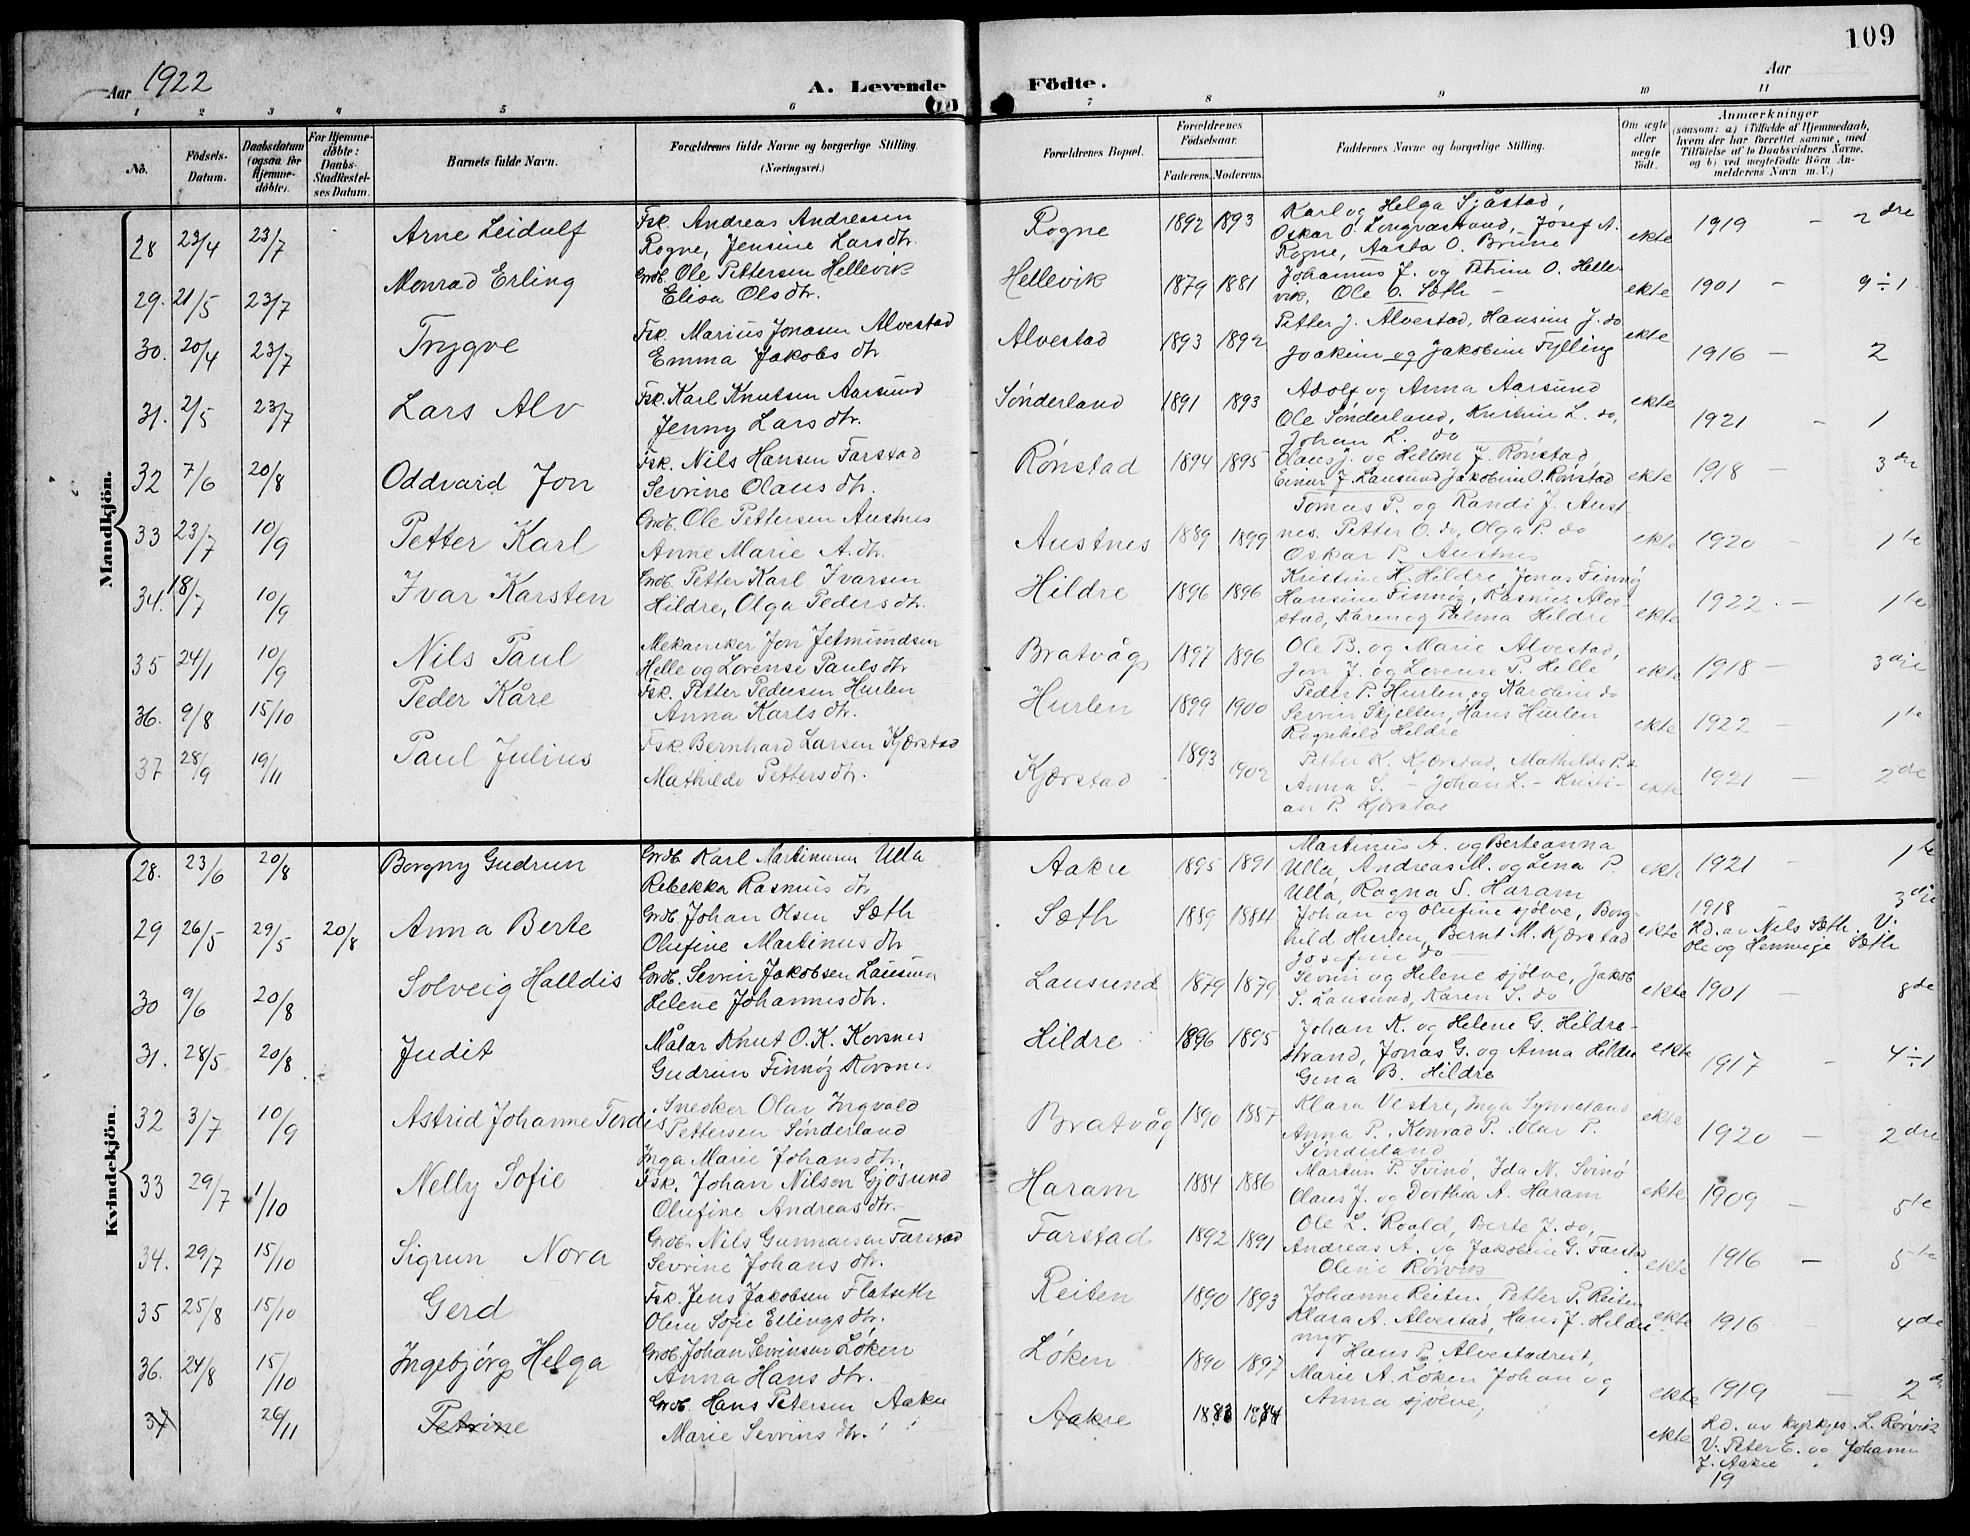 109
Aar 1922
A. Levende Födte.
Aar
1 2 3 4 5 6 7 8 9 10 11
No.
Födsels-Datum.
Daabsdatum (ogsaa for Hjemmedöbte).
For Hjemmedöbte: Daabs-Stadfæstelses Datum.
Barnets fulde Navn.
Forældrenes fulde Navne og borgerlige Stilling.
(Næringsvei.)
Forældrenes Bopæl.
Forældrenes Födselsaar.
Faderens. Moderens.
Faddernes Navne og borgerlige Stilling.
Om ægte eller uægte født.
Anmærkninger
(saasom: a) i Tilfælde af Hjemmedaab,
hvem der har forrettet samme, med
Tilföielse af to Daabsvidners Navne,
og b) ved uægtefödte Börn An-
melderens Navn m. V.)
Mandkjön.
28 23/4 23/7 Arne Leidulf Fsk. Andreas Andreasen
Rogne, Jensine Larsdtr. Rogne 1892 1893 Karl og Helga Sjåstad,
Oskar O. Longvastrand, Josef A.
Rogne, Aasta O. Brune ekte 1919 – 2dre
29. 21/5 23/7 Monrad Erling Grdb. Ole Pettersen Hellevik
Elisa Olsdtr. Hellevik 1879 1881 Johannes J. og Petrine O. Helle-
vik, Ole O. Sæth – ekte 1901 – 9÷1
30. 20/4 23/7 Trygve Fsk. Marius Jonasen Alvestad
Emma Jakobsdtr. Alvestad 1893 1892 Petter J. Alvestad, Hansine J. do
Joakim og Jakobine Fylling ekte 1916 – 2
31. 2/5 23/7 Lars Alv Fsk. Karl Knutsen Aarsund
Jenny Larsdtr. Sønderland 1891 1893 Adolf og Anna Aarsund
Ole Sønderland, Kristine L. do,
Johan L. do ekte 1921 – 1
32 7/6 20/8 Oddvard Jon Fsk. Nils Hansen Farstad
Sevrine Olausdtr. Rønstad 1894 1895 Olaus J. og Hellene J. Rønstad,
Einar J. Lausund, Jakobine O. Rønstad ekte 1918 – 3dre
33 23/7 10/9 Petter Karl Grdb. Ole Pettersen Austnes
Anne Marie A.dtr. Austnes 1889 1899 Tomas P. og Randi J. Aust
nes. Petter O. do, Olga P. do
Oskar P. Austnes ekte 1920 – 1te
34. 18/7 10/9 Ivar Karsten Grdb. Petter Karl Ivarsen
Hildre, Olga Pedersdtr. Hildre 1896 1896 Kristine H. Hildre, Jonas Finnøy
Hansine Finnøy, Rasmus Alve-
stad, Karen og Palma Hildre ekte 1922. – 1te
35 24/1 10/9 Nils Paul Mekaniker Jon Jetmundsen
Helle og Lovense Paulsdtr Bratvåg 1897 1896 Ole B. og Marie Alvestad,
Jon J. og Lovense P. Helle ekte 1918 – 3dje
36. 9/8 15/10 Peder Kåre Fsk. Petter Pedersen Hurlen
Anna Karlsdtr. Hurlen 1899 1900 Peder P. Hurlen og Karoline do
Sevrin Skjelten, Hans Hurlen
Ragnhild Hildre ekte 1922 – 1te
37 28/9 19/11 Paul Julius Fsk. Bernhard Larsen Kjærstad
Mathilde Pettersdtr. Kjærstad 1893 1902 Petter K. Kjærstad, Mathilde P. do
Anna S. – Johan L. – Kristi-
an P. Kjærstad ekte 1921 – 2de
Kvindekjön.
28. 23/6 20/8 Borgny Gudrun Grdb. Karl Martinusen Ulla
Rebekka Rasmusdtr Aakre 1895 1891 Martinus A. og Berteanna
Ulla, Andreas M. og Lina P.
Ulla, Ragna S. Haram ekte 1921 – 1te
29 26/5 29/5 20/8 Anna Berte Grdb Johan Olsen Sæth
Olufine Martinusdtr Sæth 1889 1884 Johan og Olufine sjølve, Borg-
hild Hurlen, Bernt M. Kjærstad
Josefine do – ekte 1918 – 3dje
Hd. av Nils Sæth. V.
Ole og Hemmige Sæth
30 9/6 20/8 Solveig Halldis Grdb. Sevrin Jakobsen Lausund
Helene Johannesdtr. Lausund 1879 1879 Sevrin og Helene sjølve, Jakob
S. Lausund, Karen S. do ekte 1901 – 8de
31. 28/5 20/8 Judit Målar Knut O. K. Korsnes
Gudrun Finnøy Korsnes Hildre 1896 1895 Johan K. og Helene G. Hildre-
strand, Jonas G. og Anna Hildre
Gina B. Hildre ekte 1917 – 4÷1
32 3/7 10/9 Astrid Johanne Tordis Snedker Olav Ingvald
Pettersen Sønderland
Inga Marie Johansdtr. Bratvåg 1890 1887 Klara Vestre, Inga Synnaland
Anna P., Konrad P., Olav P.
Sønderland ekte 1920 – 2dre
33 29/7 1/10 Nelly Sofie Fsk. Johan Nilsen Gjøsund
Olufine Andreasdtr. Haram 1884 1886 Martin P. Svinø, Ida N. Svinø
Olaus J. og Dorthea A. Haram ekte 1909 – 5te
34. 29/7 15/10 Sigrun Nora Grdb. Nils Gunnarsen Farstad
Sevrine Johansdtr. Farstad 1892 1891 Ole L. Roald, Berte J. do,
Andreas A. og Jakobine G. Farstad
Oline Rørvik ekte 1916 – 5te
35 25/8 15/10 Gerd Fsk. Jens Jakobsen Flatseth
Oline Sofie Ellingsdtr. Reiten 1890 1893 Johanne Reiten, Petter P. Reiten
Klara A. Alvestad, Hans J. Hildre
myr ekte 1916 – 4de
36. 24/8 15/10 Ingebjørg Helga Grdb. Johan Sevrinsen Løken
Anna Hansdtr. Løken 1890 1897 Hans P. Alvestadreit,
Marie A. Løken Johan og
Anna sjølve, ekte 1919 – 2
37 26/11 Petrine Grdb. Hans Petersen Aakre
Marie Sevrinsdtr. Aakre 1883 1884 ekte Hd. av kyrkjes. L. Rørvik
V. Peter E. og Johanne
J. Aakre
19